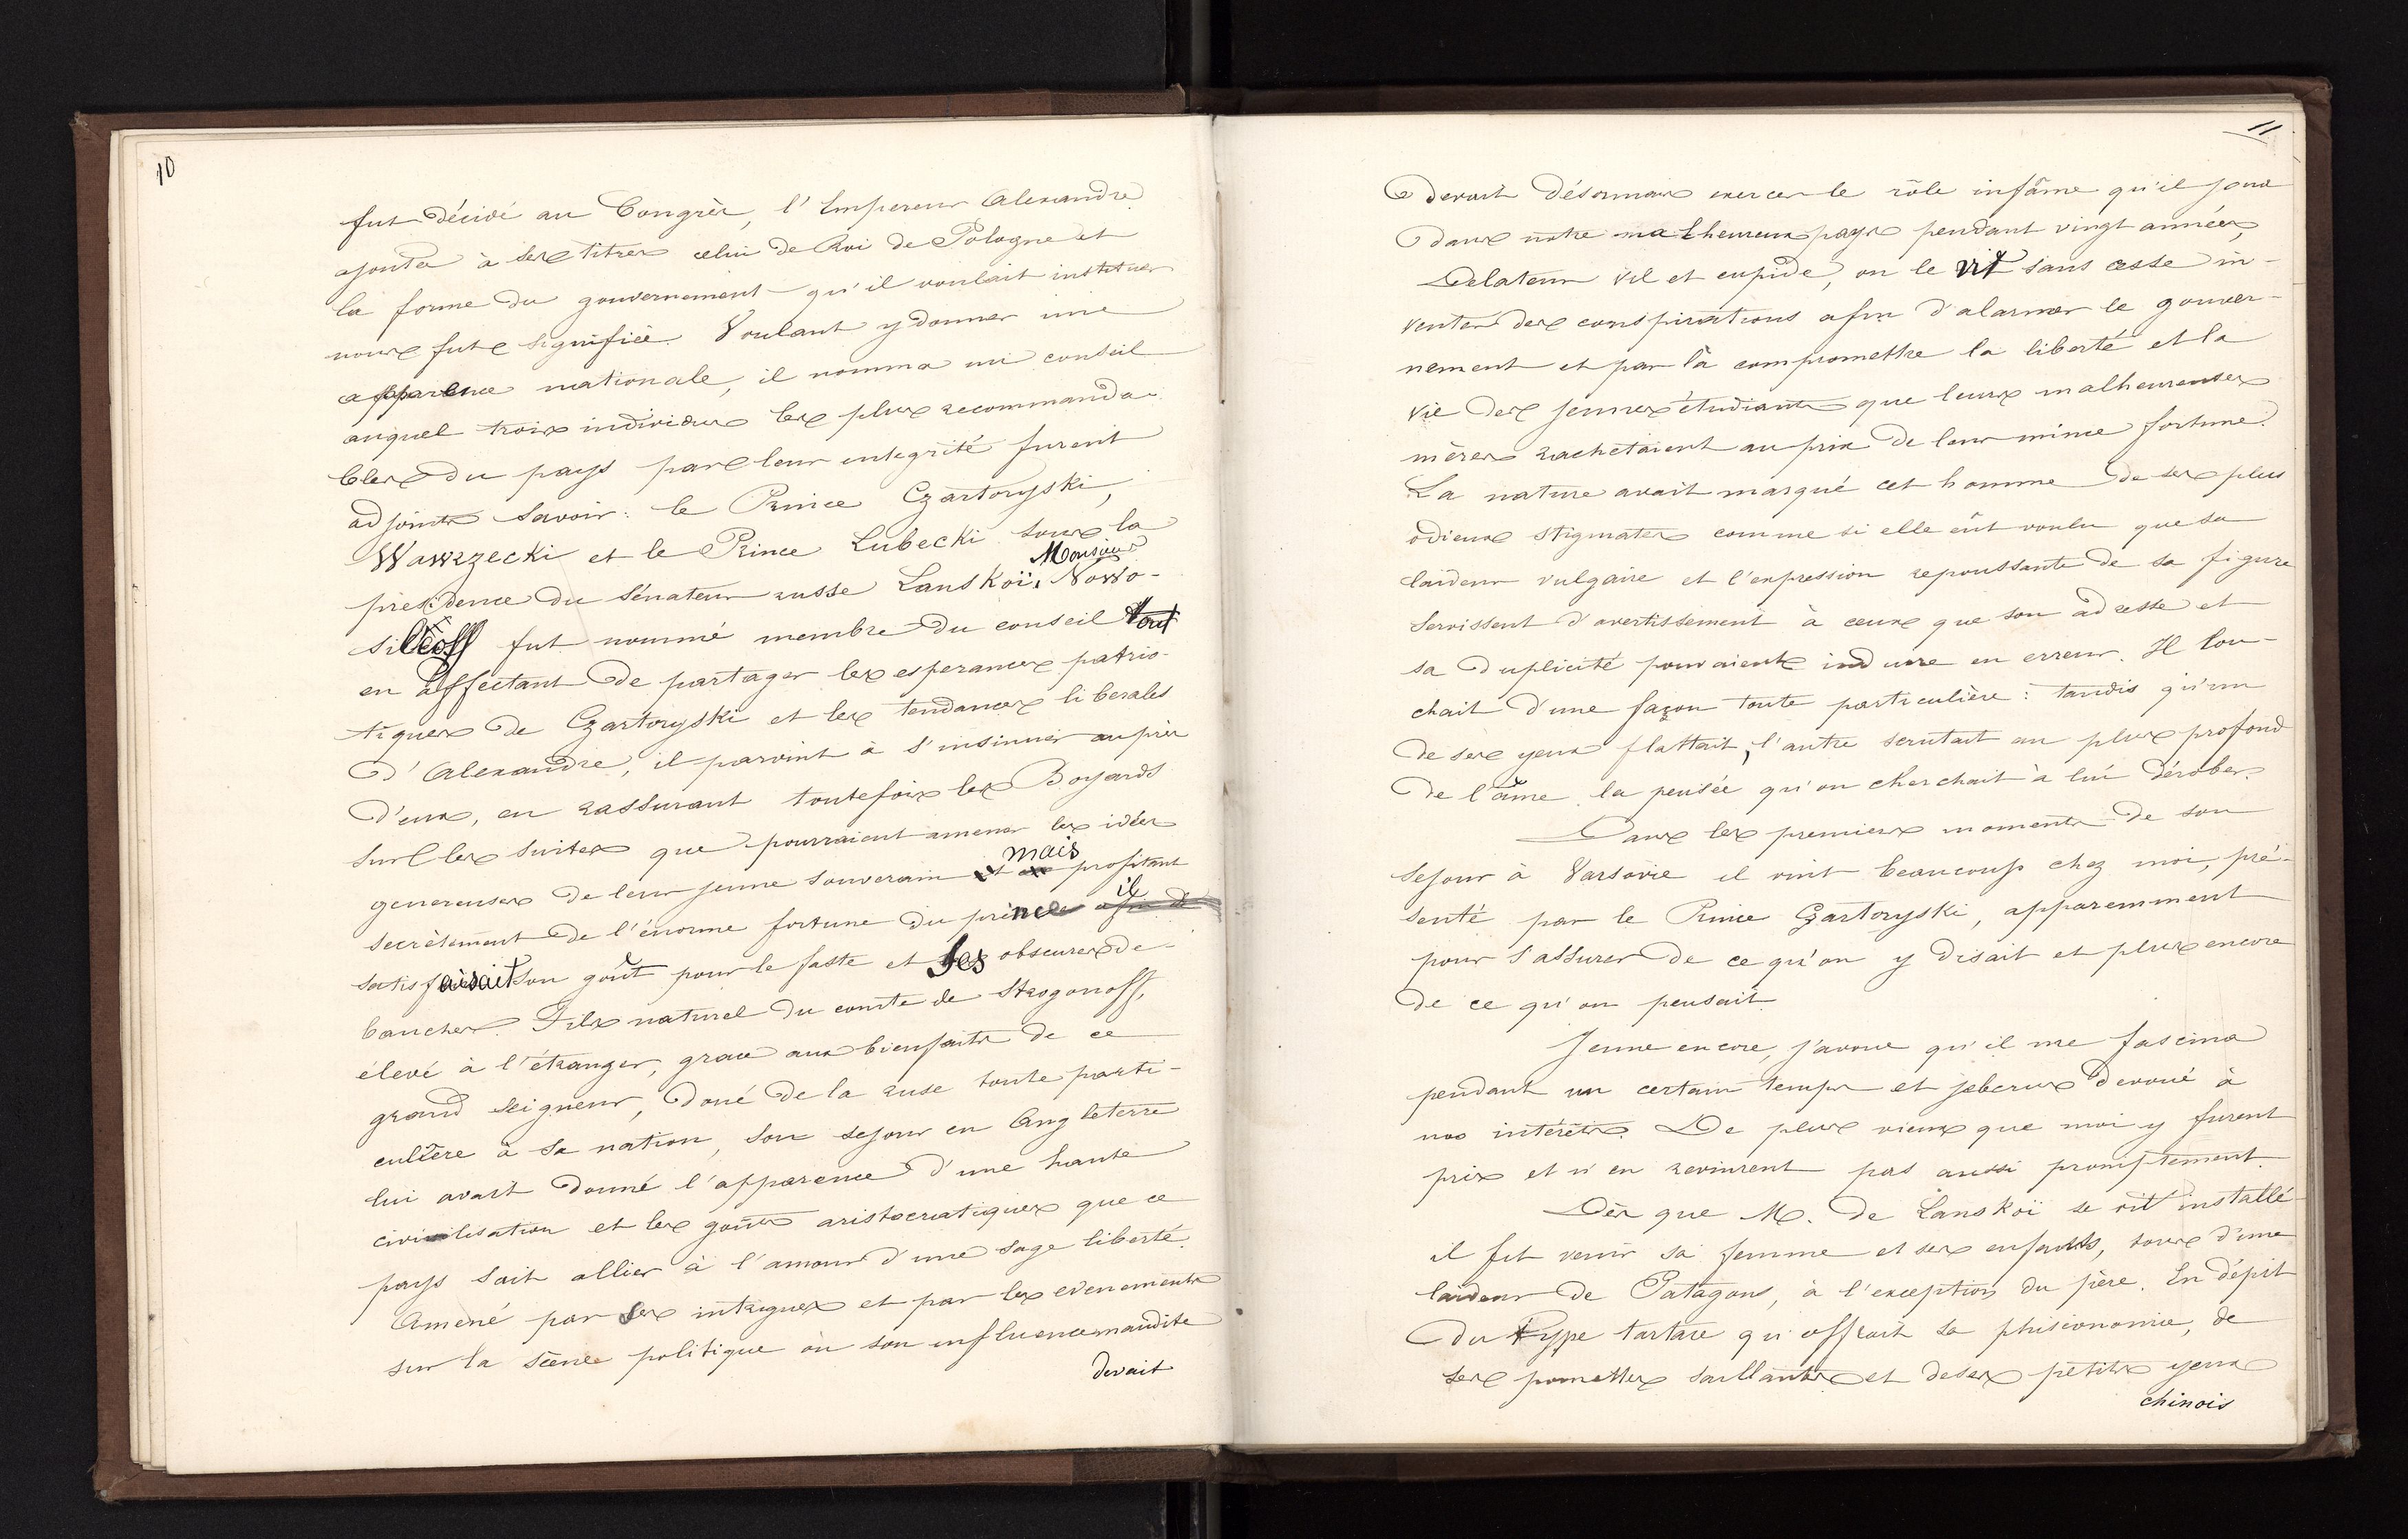 10
fut décidé au Congrès, l'Empereur Alexandre
ajouta à ses titres celui de Roi de Pologne et
la forme du gouvernement qu'il voulait instituer
nous fut signifiée. Voulant y donner une
apparence nationale, il nomma un conseil
auquel trois individus les plus recommanda-
bles du pays par leur integrité furent
adjoints savoir: le Prince Czartoryski,
Wawrzecki et le Prince Lubecki sous la
présidence du Sénateur russe Lanskoï. Monsieur Nowo-
sileoff fut nommé membre du conseil tout
en affectant de partager les esperances patrio-
tiques de Czartoryski et les tendances liberales
d'Alexandre, il parvint à s'insinuer auprès
d'eux, en rassurant toutefois les Boyards
sur les suites que pourraient amener les idées
genereuses de leur jeune souverain mais profitant
secrètement de l'énorme fortune du prince il
satisfaisait son goût pour le faste et ses obscures dé-
bauches. Fils naturel du comte de Strogonoff,
élevé à l'étranger, grace aux bienfaits de ce
grand seigneur, doué de la ruse toute parti-
culière à sa nation, son sejour en Angleterre
lui avait donné l'apparence d'une haute
civilisation et les goûts aristocratiques que ce
pays sait allier à l'amour d'une sage liberté.
Amené par ses intrigues et par les evenements
sur la scène politique où son influence maudite
devait
11
devait désormais exercer le rôle infâme qu'il joua
dans notre malheureux pays pendant vingt années,
Delateur vil et cupide, on le vit sans cesse in-
venter des conspirations afin d'alarmer le gouver-
nement et par là compromettre la liberté et la
vie des jeunes étudiants que leurs malheureuses
mères rachetaient au prix de leur mince fortune.
La nature avait marqué cet homme de ses plus
odieux stigmates comme si elle eût voulu que sa
laideur vulgaire et l'expression repoussante de sa figure
servissent d'avertissement à ceux que son adresse et
sa duplicité pouvaient induire en erreur. Il lou-
chait d'une façon toute particulière: tandis qu'un
de ses yeux flattait, l'autre scrutait au plus profond
de l'âme la pensée qu'on cherchait à lui dérober.
Dans les premiers moments de son
sejour à Varsovie il vint beaucoup chez moi, pré-
senté par le Prince Czartoryski, apparemment
pour s'assurer de ce qu'on y disait et plus encore
de ce qu'on pensait.
Jeune encore, j'avoue qu'il me fascina
pendant un certain temps et je le crus devoué à
nos intérêts. De plus vieux que moi y furent
pris et n'en revinrent pas aussi promptement.
Dès que M. de Lanskoï se vit installé
il fit venir sa femme et ses enfants, tous d'une
laideur de Patagons, à l'exception du père. En dépit
du type tartare qu'offrait sa phisionomie, de
ses pomettes saillantes et de ses petits yeux
chinois